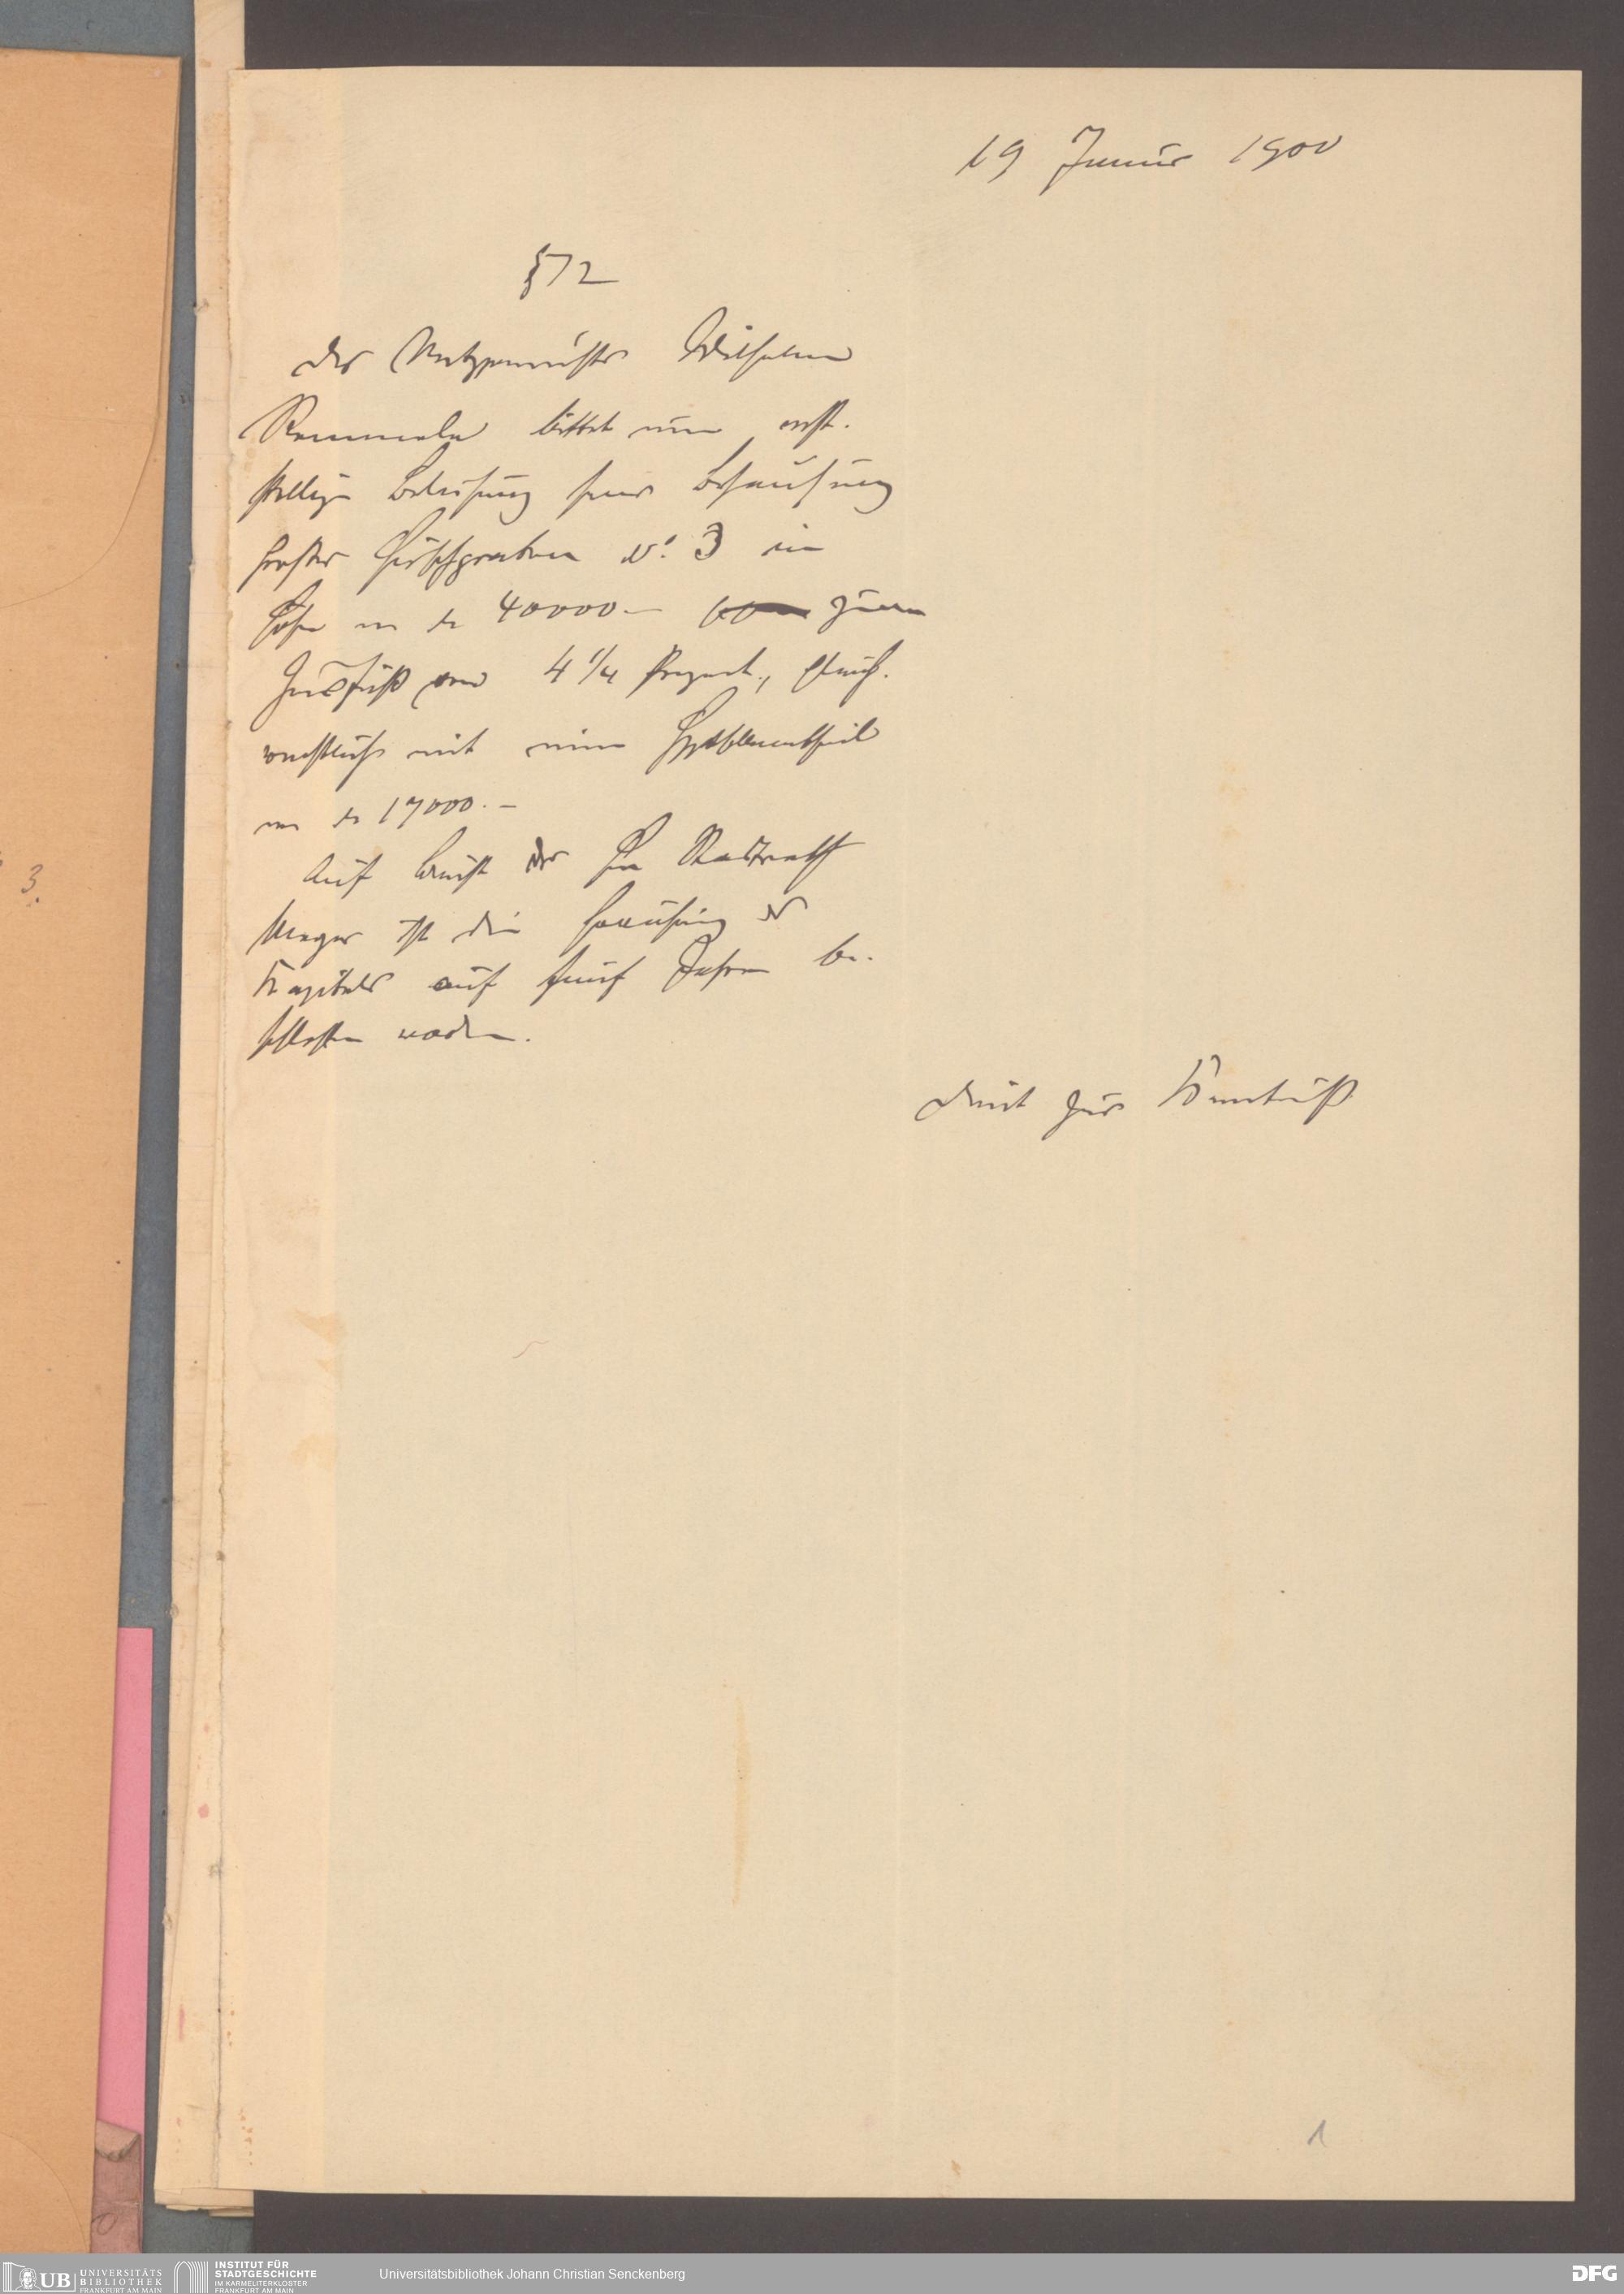 19 Januar 1900
§ 72
Der Metzgermeister Wilhelm
Remmele bittet um erst-
stellige Beleihung seiner Behausung
Großer Hirschgraben No. 3 in
Höhe von M 40000.– zum
Zinsfuß von 4 1/4 Prozent, gleich-
rechtlich mit einem Hypothekentheil
von M 17000.–
Auf Bericht des Hrn Stadtrath
Meyer ist die Hinausleihung des
Kapitals auf fünf Jahre be-
schlossen worden.
Dient zur Kenntniß
3.
1
UB UNIVERSITÄTS BIBLIOTHEK FRANKFURT AM MAIN
INSTITUT FÜR STADTGESCHICHTE IM KARMELITERKLOSTER FRANKFURT AM MAIN
Universitätsbibliothek Johann Christian Senckenberg
DFG